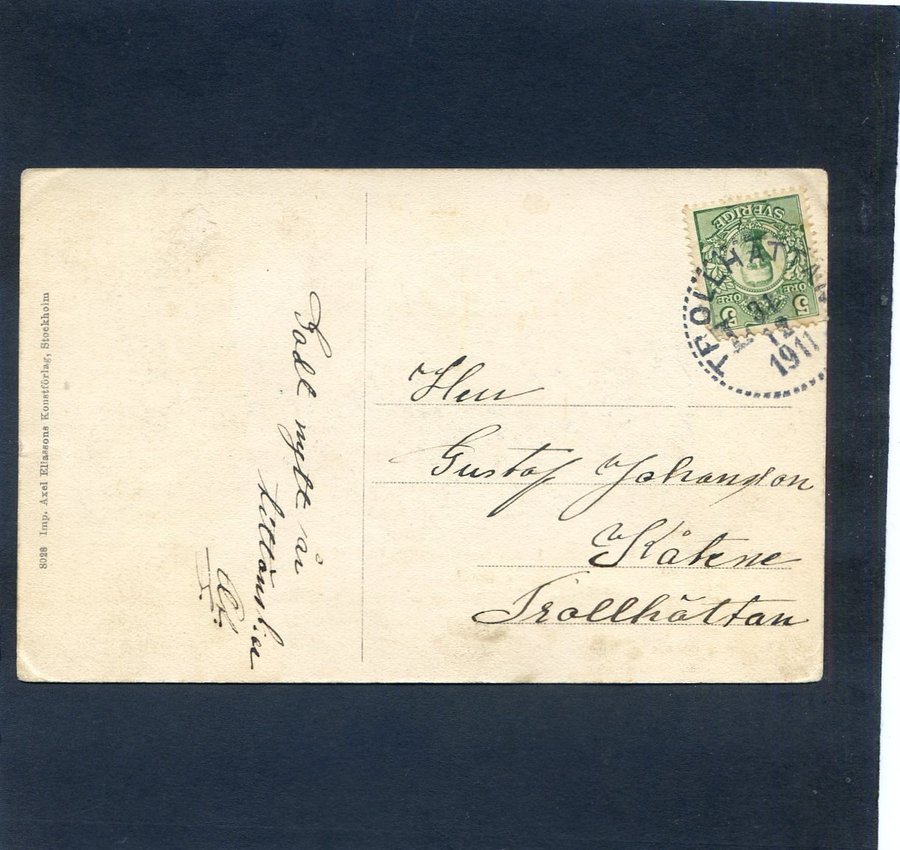 8028 Imp. Axel Eliassons Konstförlag, Stockholm
Godt nytt år
tillönskas
SVERIGE
5 ÖRE ÖRE 5
TROLLHÄTTAN
31
12
1911
Herr
Gustaf Johansson
Trollhättan